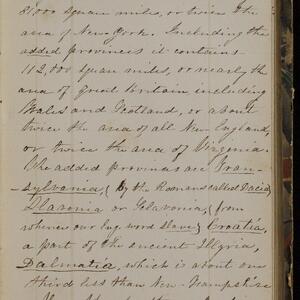 81,000 square miles, or twice the
area of New York. Including the
added provinces it contains
112,000 square miles, or nearly the
area of Great Britain including
Wales and Scotland, or about
twice the area of all New England,
or twice the area of Virginia.
The added provinces are Tran-
-sylvania, (by the Romans called Dacia)
Slavonia or Sclavonia, (from
whence our Eng. word Slave) Croatia,
a part of the ancient Illyria,
Dalmatia, which is about one
third less than New Hampshire